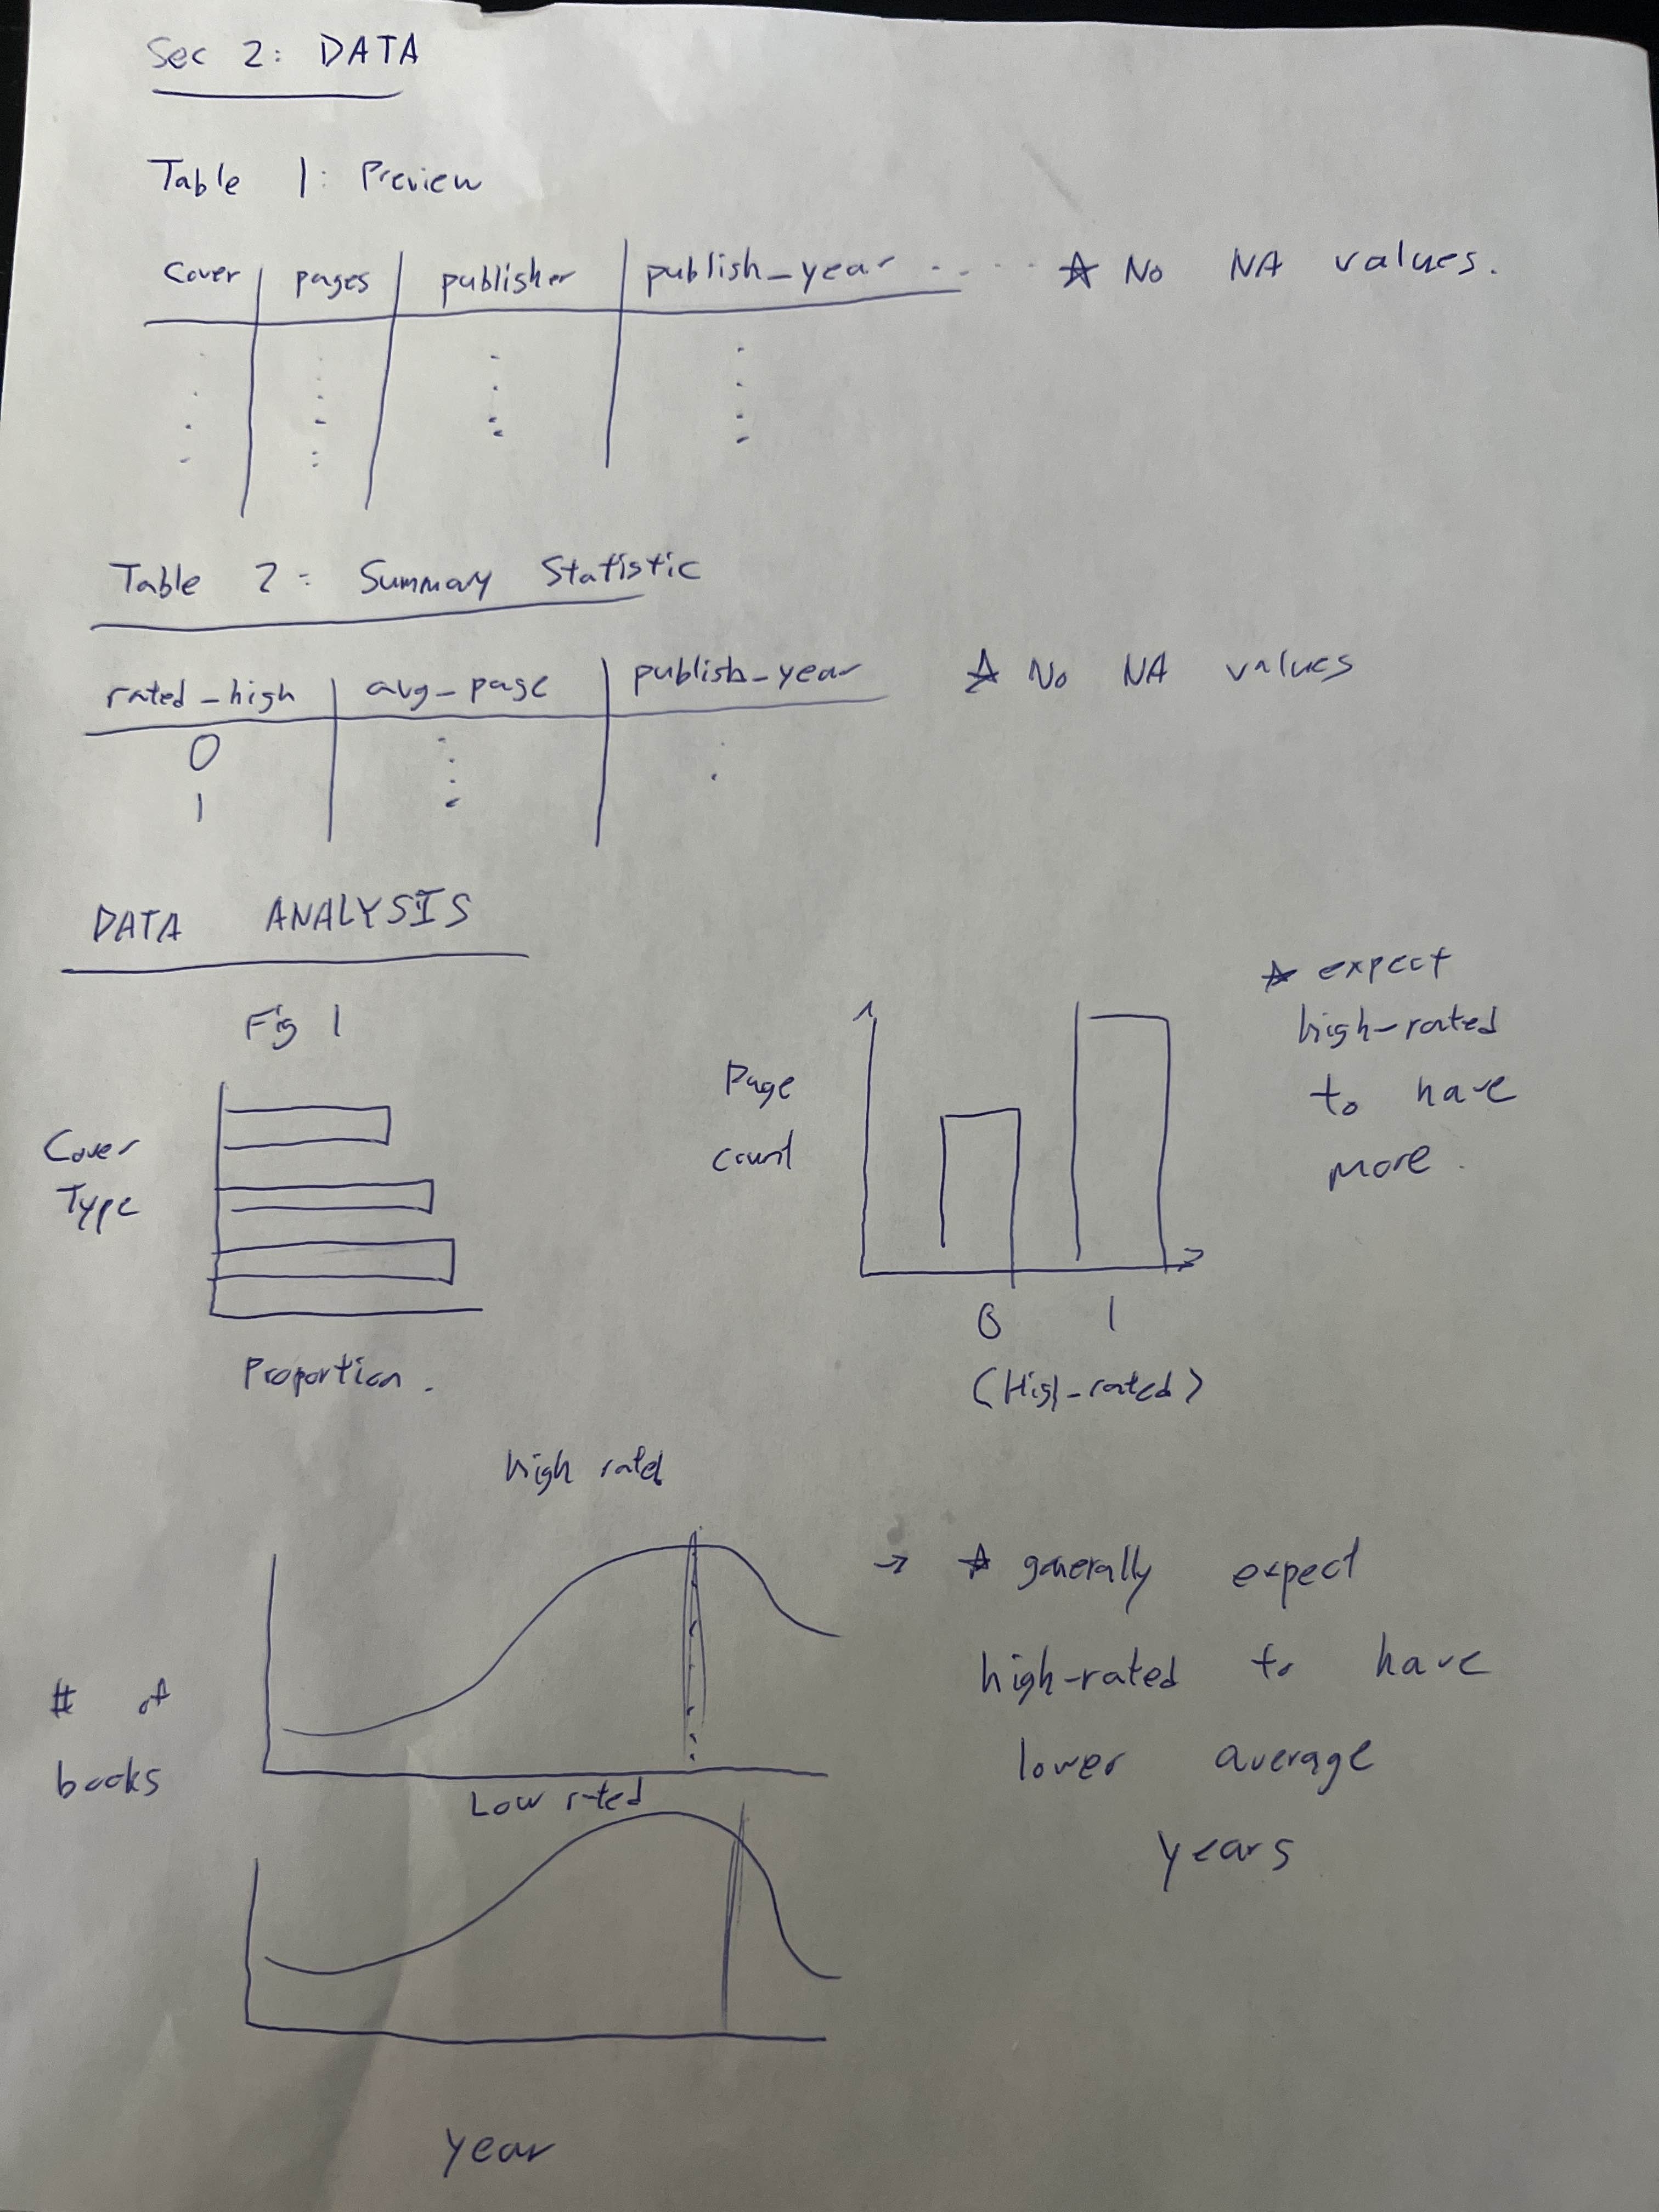 Sec 2: DATA
Table 1: Preview
Cover pages publisher publish_year ..... ☆ No NA values.
Table 2: Summary Statistic
rated_high avg_page publish_year ☆ No NA values
0
1
DATA ANALYSIS
Fig 1
Cover
Type
Proportion.
Page
count
0 1
(High_rated)
☆ expect
high-rated
to have
more.
high rated
# of
books
Low rated
year
→ ☆ generally expect
high-rated to have
lower average
years